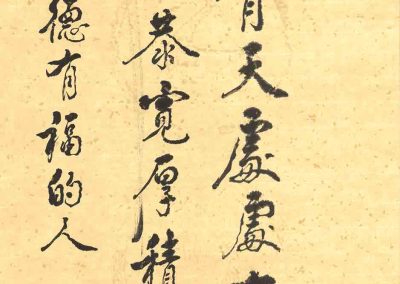 天處處
泰寬厚積
德有福的人